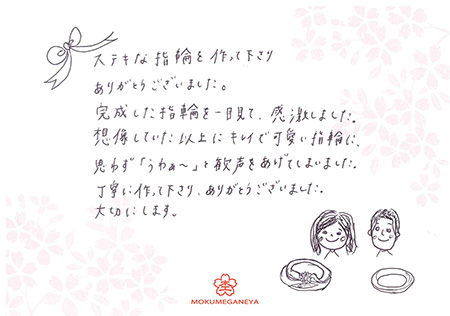 ステキな指輪を作って下さり
ありがとうございました。
完成した指輪を一目見て、感激しました。
想像していた以上にキレイで可愛い指輪に、
思わず「うわぁ〜」と歓声をあげてしまいました。
丁寧に作って下さり、ありがとうございました。
大切にします。
MOKUMEGANEYA